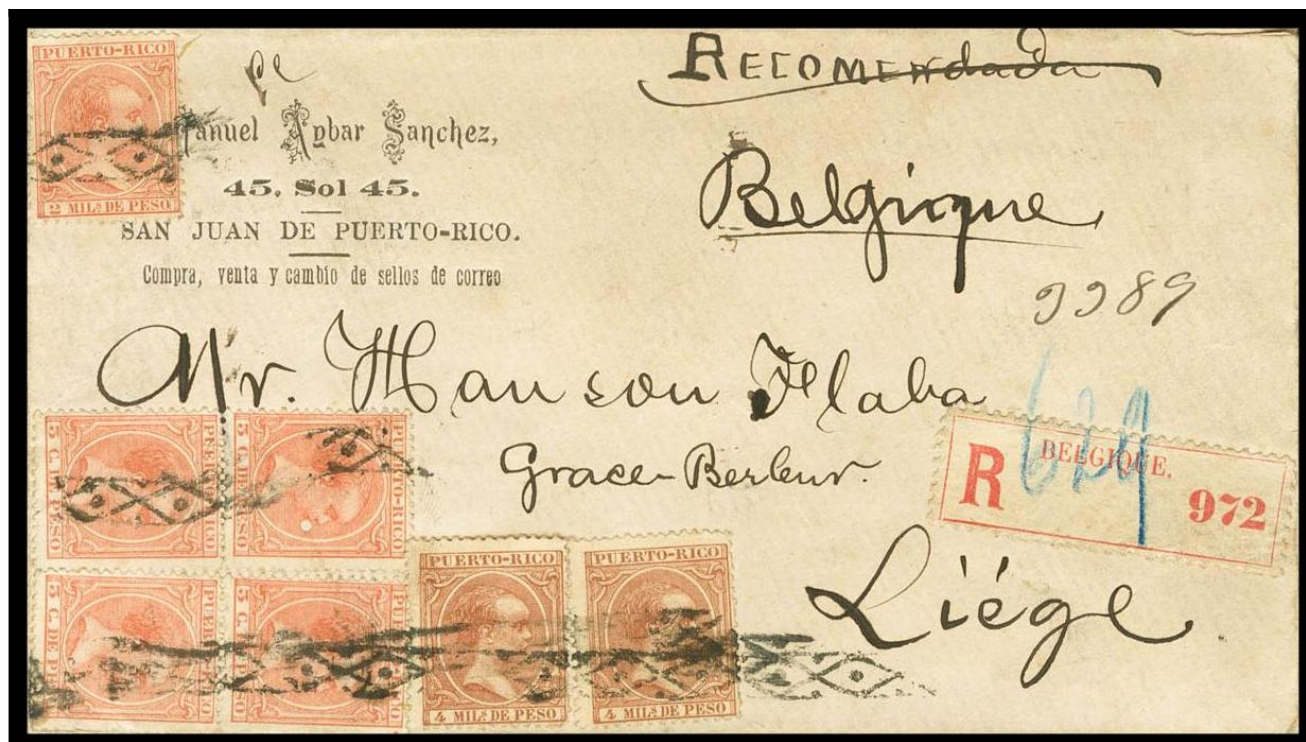 PUERTO-RICO
2 MIL.s DE PESO
Recomendada
Manuel Aybar Sanchez,
45, Sol 45.
SAN JUAN DE PUERTO-RICO.
Compra, venta y cambio de sellos de correo
Belgique
9989
Mr. Hanson Flaba
Grace-Berleur.
Liége
R BELGIQUE. 972
629
5 C. DE PESO
PUERTO-RICO
5 C. DE PESO
PUERTO-RICO
5 C. DE PESO
5 C. DE PESO
PUERTO-RICO
4 MIL.s DE PESO
PUERTO-RICO
4 MIL.s DE PESO